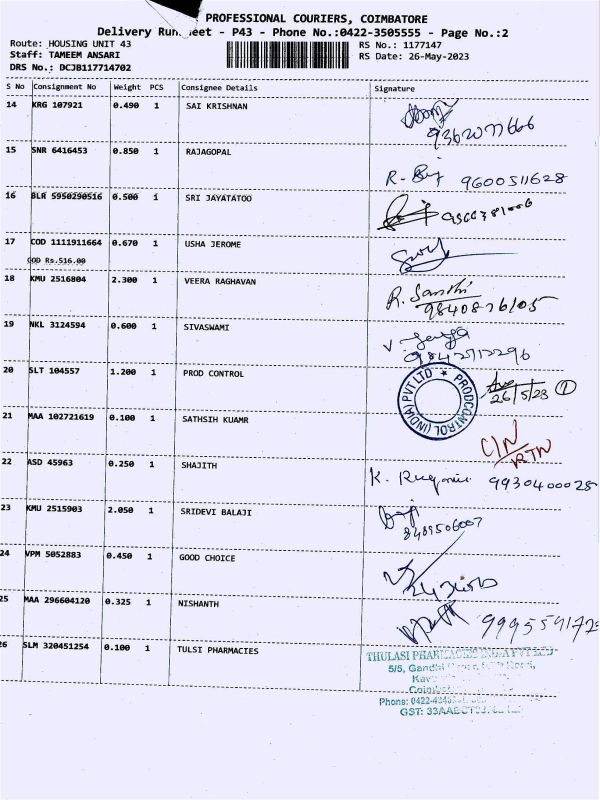 PROFESSIONAL COURIERS, COIMBATORE
Delivery Runsheet - P43 - Phone No.:0422-3505555 - Page No.:2
Route: HOUSING UNIT 43 RS No.: 1177147
Staff: TAMEEM ANSARI RS Date: 26-May-2023
DRS No.: DCJB117714702
S No Consignment No Weight PCS Consignee Details Signature
14 KRG 107921 0.490 1 SAI KRISHNAN
9362077666
15 SNR 6416453 0.850 1 RAJAGOPAL
9600511628
16 BLR 5950290516 0.500 1 SRI JAYATATOO
17 COD 1111911664 0.670 1 USHA JEROME
COD Rs.516.00
18 KMU 2516804 2.300 1 VEERA RAGHAVAN
R. Santhi
9840876105
19 NKL 3124594 0.600 1 SIVASWAMI
9842712296
20 SLT 104557 1.200 1 PROD CONTROL
PRODCONTROL (INDIA) PVT LTD
26/5/23 1
21 MAA 102721619 0.100 1 SATHSIH KUAMR
C/N
RTN
22 ASD 45963 0.250 1 SHAJITH
K. 9930400028
23 KMU 2515903 2.050 1 SRIDEVI BALAJI
8489506007
24 VPM 5052883 0.450 1 GOOD CHOICE
25 MAA 296604120 0.325 1 NISHANTH
26 SLM 320451254 0.100 1 TULSI PHARMACIES
THULASI PHARMACIES INDIA PVT LTD
5/5, Gandhi
Phone: 0422-